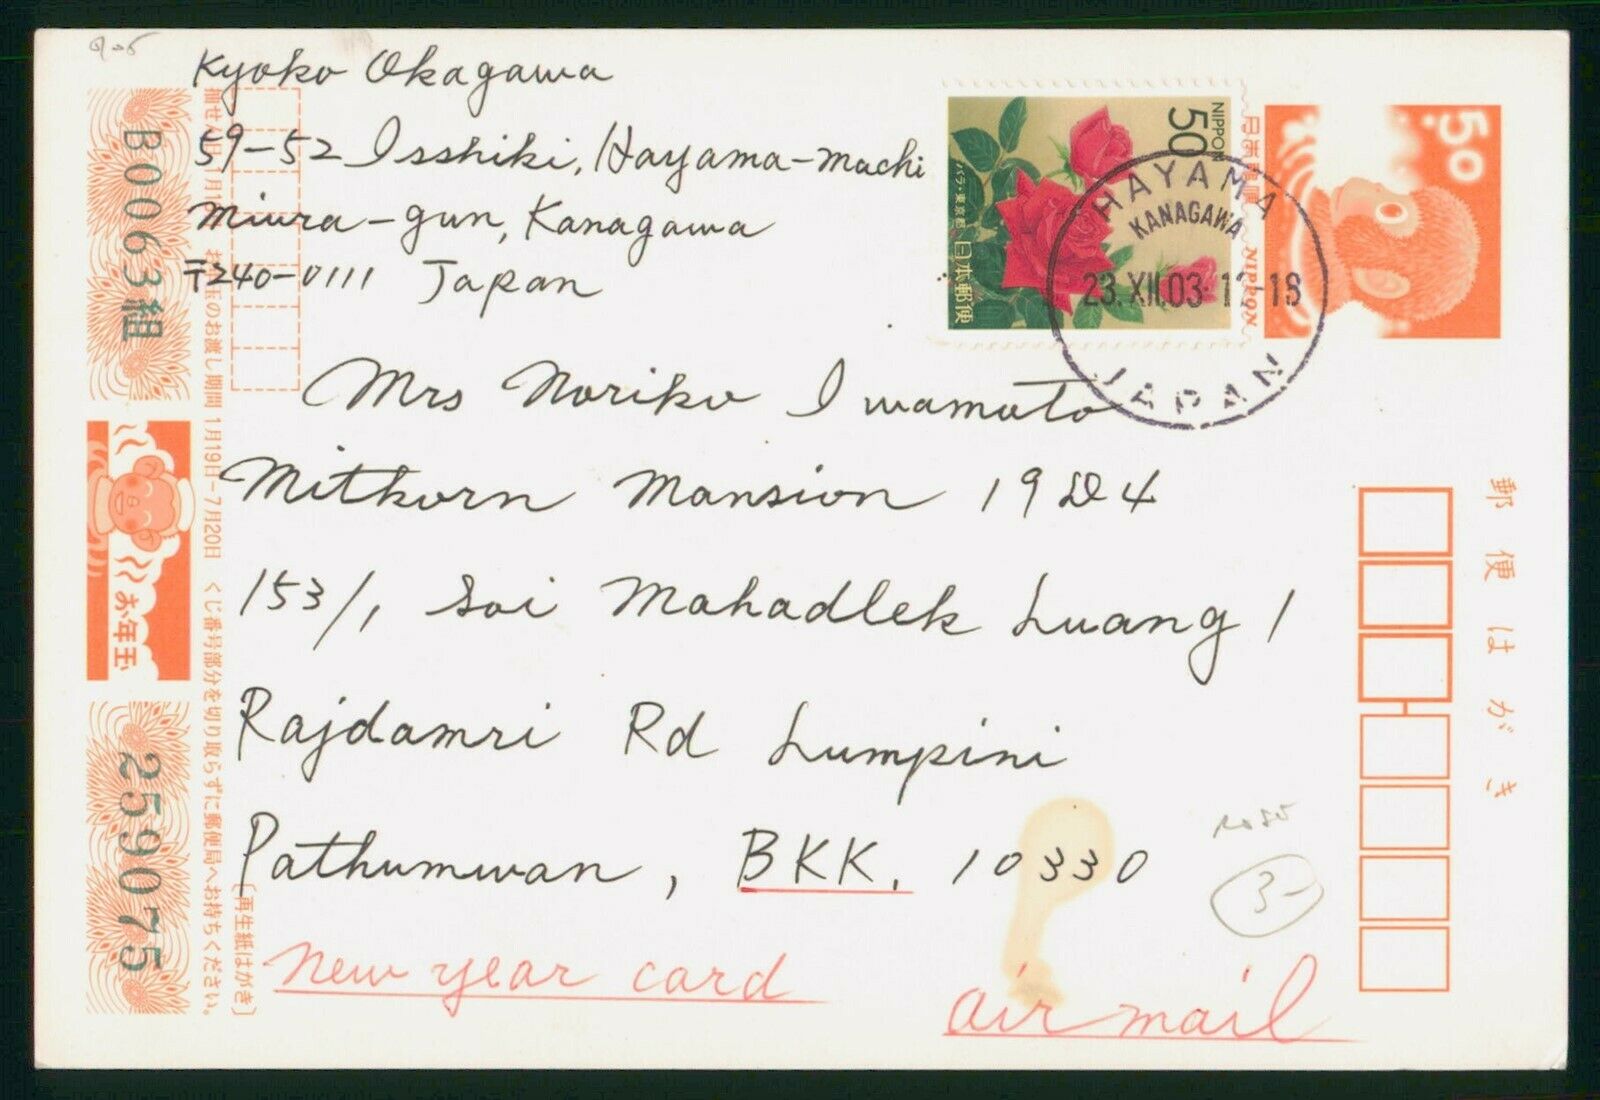 Kyoko Okagawa
59-52 Isshiki, Hayama-machi
Miura-gun, Kanagawa
〒240-0111 Japan
50
NIPPON
バラ・東京都
日本郵便
HAYAMA
KANAGAWA
23.XII.03
18
JAPAN
50
日本郵便
NIPPON
Mrs Noriko Iwamoto
Mitkorn Mansion 19D4
153/1, Soi Mahadlek Luang 1
Rajdamri Rd Lumpini
Pathumwan, BKK. 10330
New year card
air mail
郵便はがき
B0063組
お年玉
259075
お年玉のお渡し期間 1月19日-7月20日 くじ番号部分を切り取らずに郵便局へお持ちください。
〔再生紙はがき〕
3-